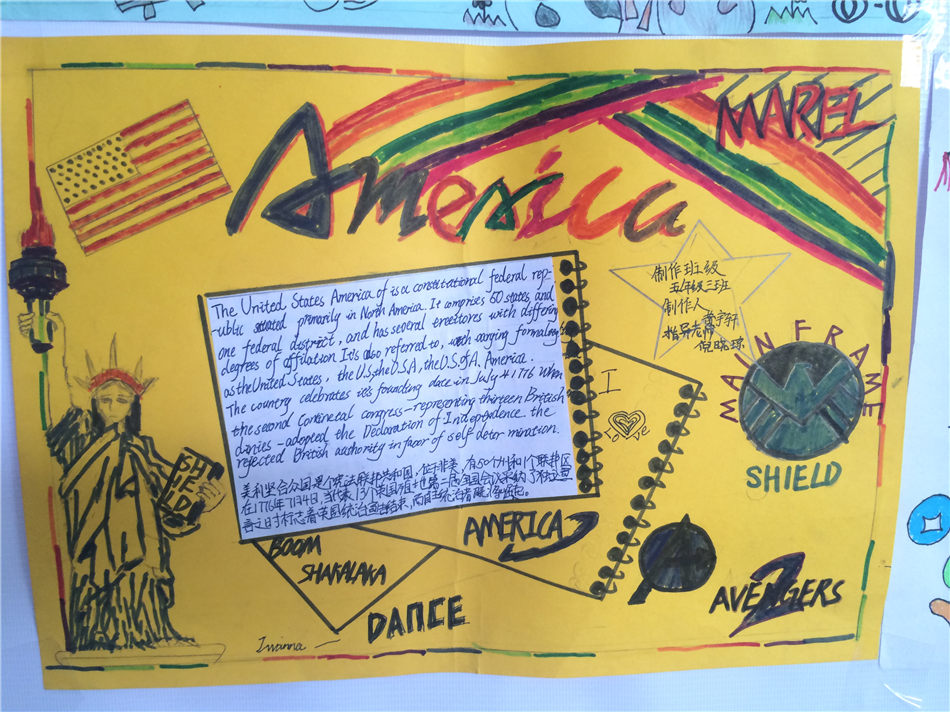 America
MAREL
制作班级
五年级三班
制作人
黄宇轩
指导老师
倪晓琼
The United States America of is a constitational federal rep-
-ublic stated primarily in North America. It comprises 50 states and
one federal district, and has several ereetores with differing
degrees of affilation. It's also referred to, with varying formalng's
as the United States, the U.S, the D.S.A, the U.S. of A. America.
The country celebrates it's founding date in July 4 1776. When
the second Continetal congress-representing thirteen British
danies-adopted the Declaration of Indepedence. the
rejected British authority in faor of self deter mination.
美利坚会众国是个宪法联邦共和国, 位于北美, 有50个州和1个联邦区
在1776年7月4日, 当代表13个英国领土地第二届全国会议采纳了独立宣
言之时标志着英国统治
I
Love
MAINFRAME
SHIELD
SHIELD
AMERICA
BOOM
SHAKALAKA
DANCE
AVENGERS
2
Iwanna